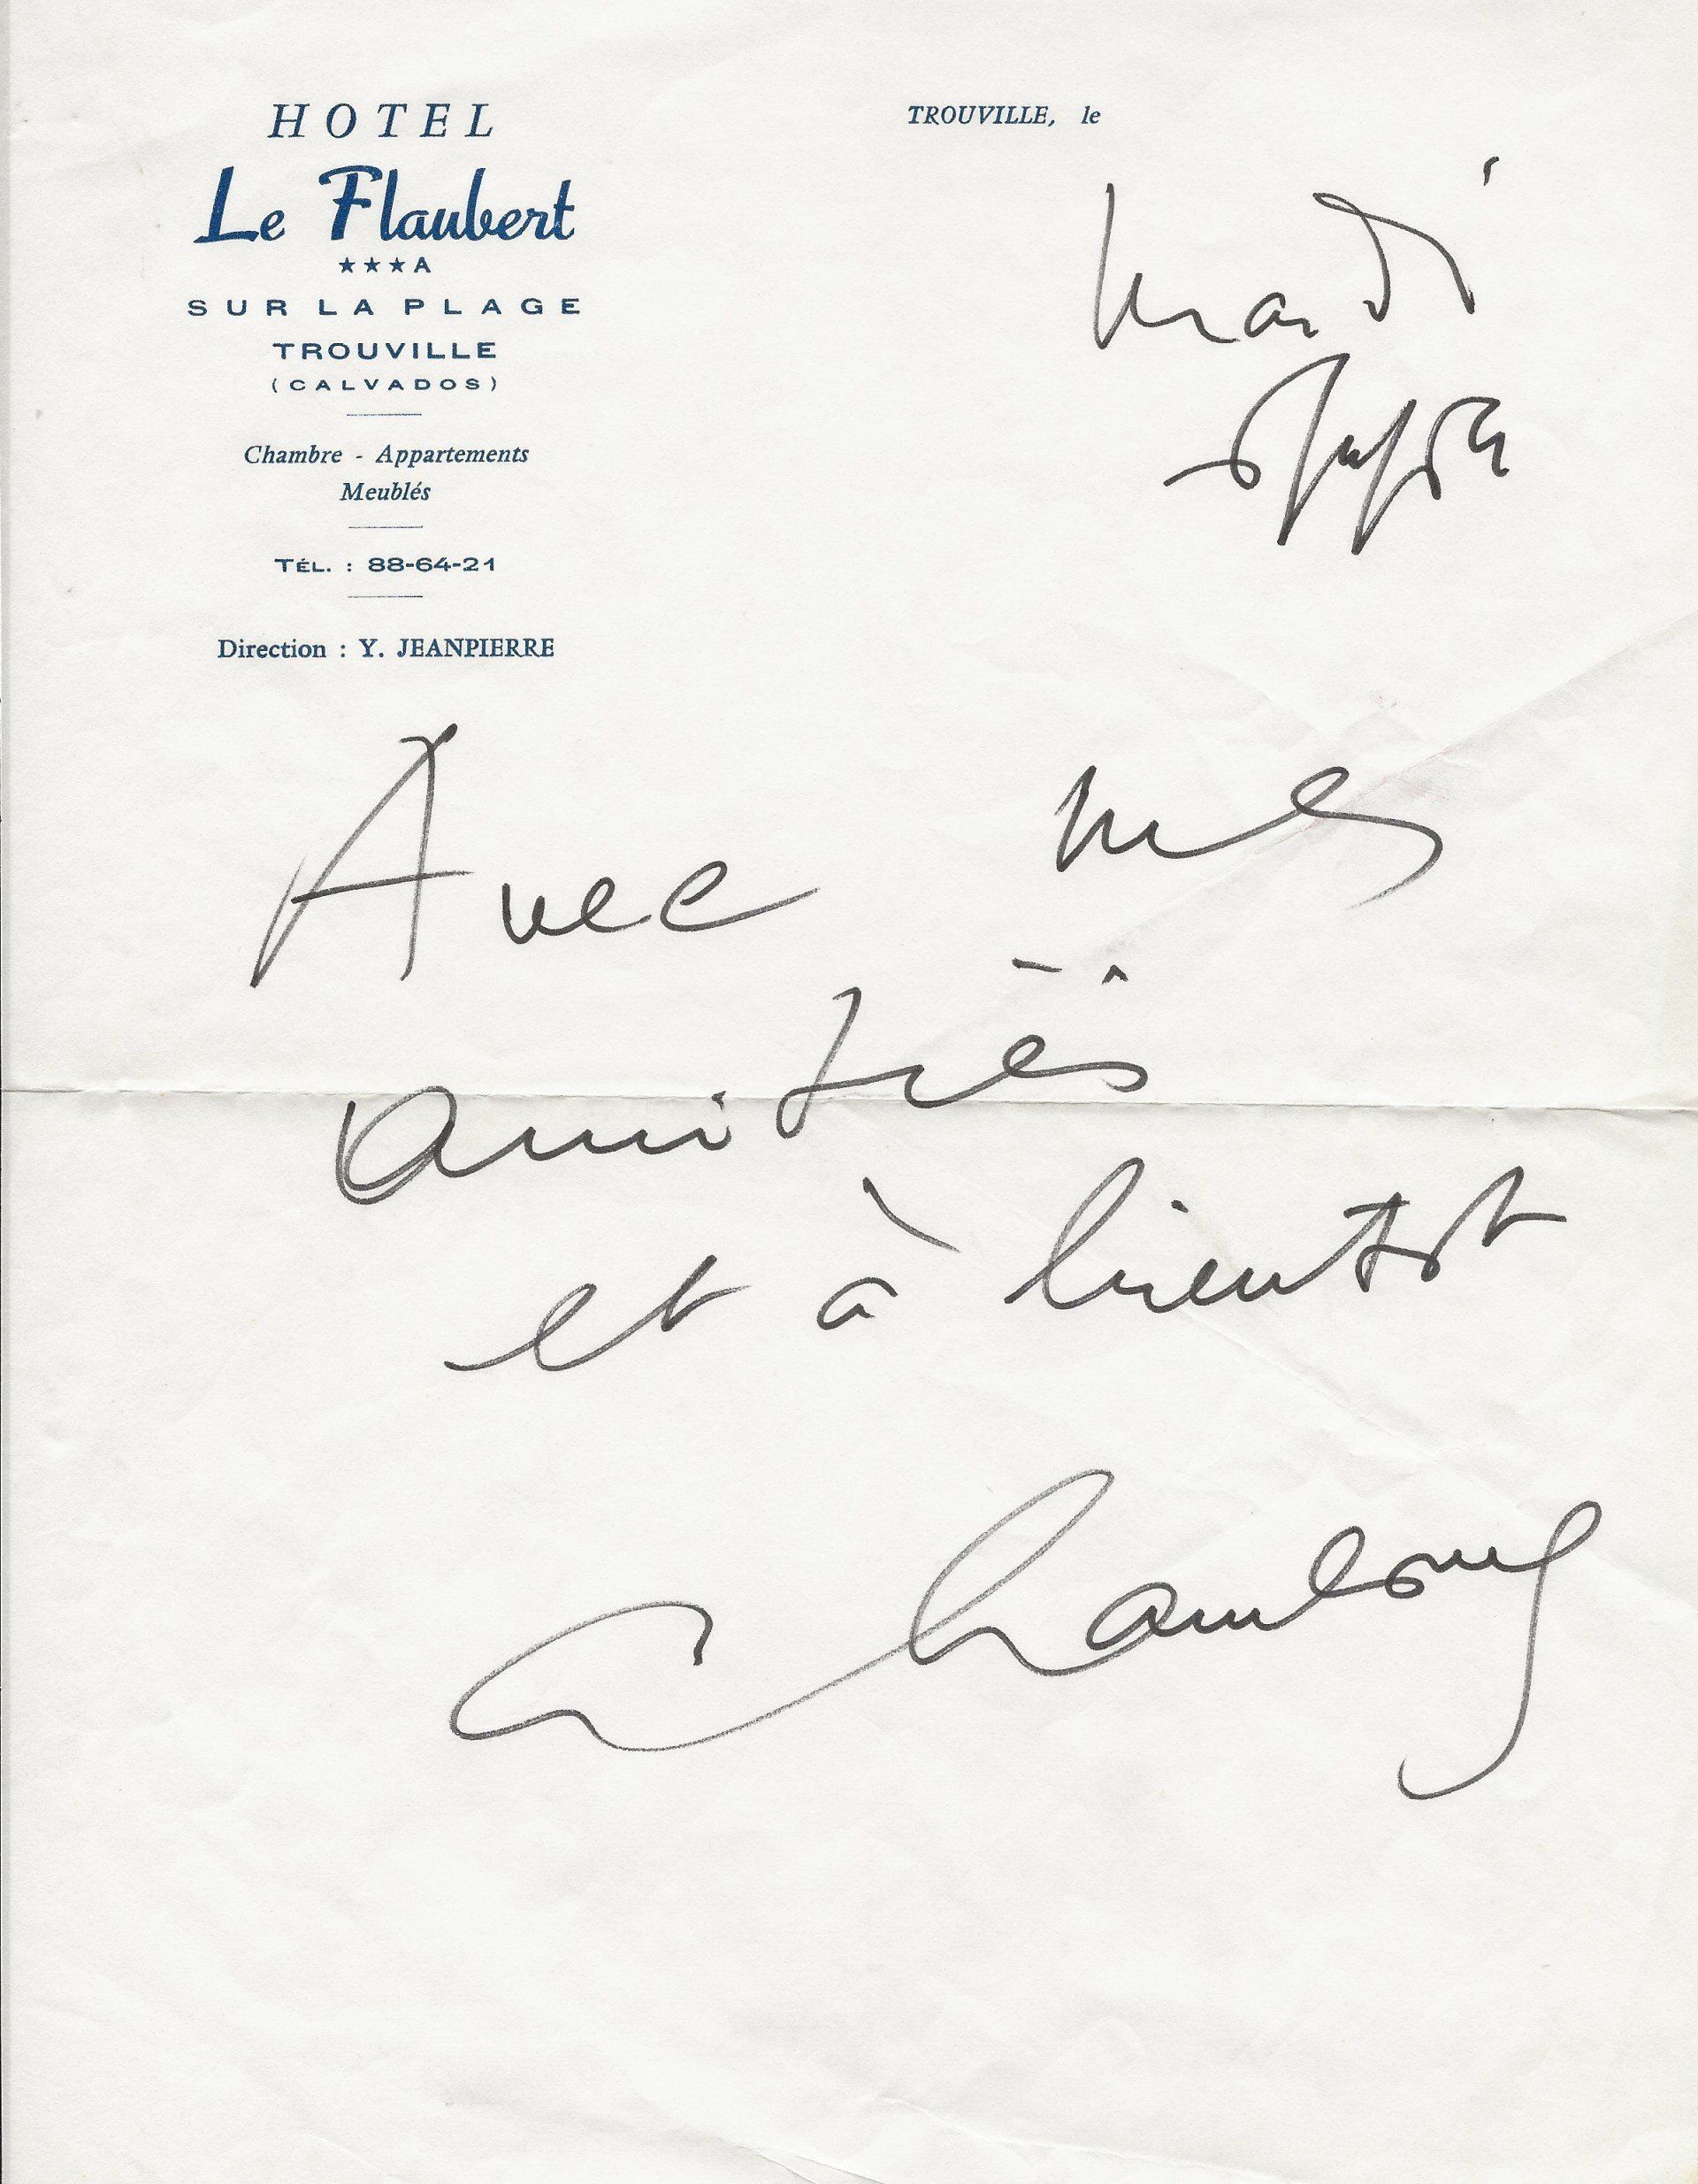 HOTEL
Le Flaubert
★★★A
SUR LA PLAGE
TROUVILLE
(CALVADOS)
Chambre - Appartements
Meublés
TÉL. : 88-64-21
Direction : Y. JEANPIERRE
TROUVILLE, le
mardi
Avec mes
amitiés
et à bientôt